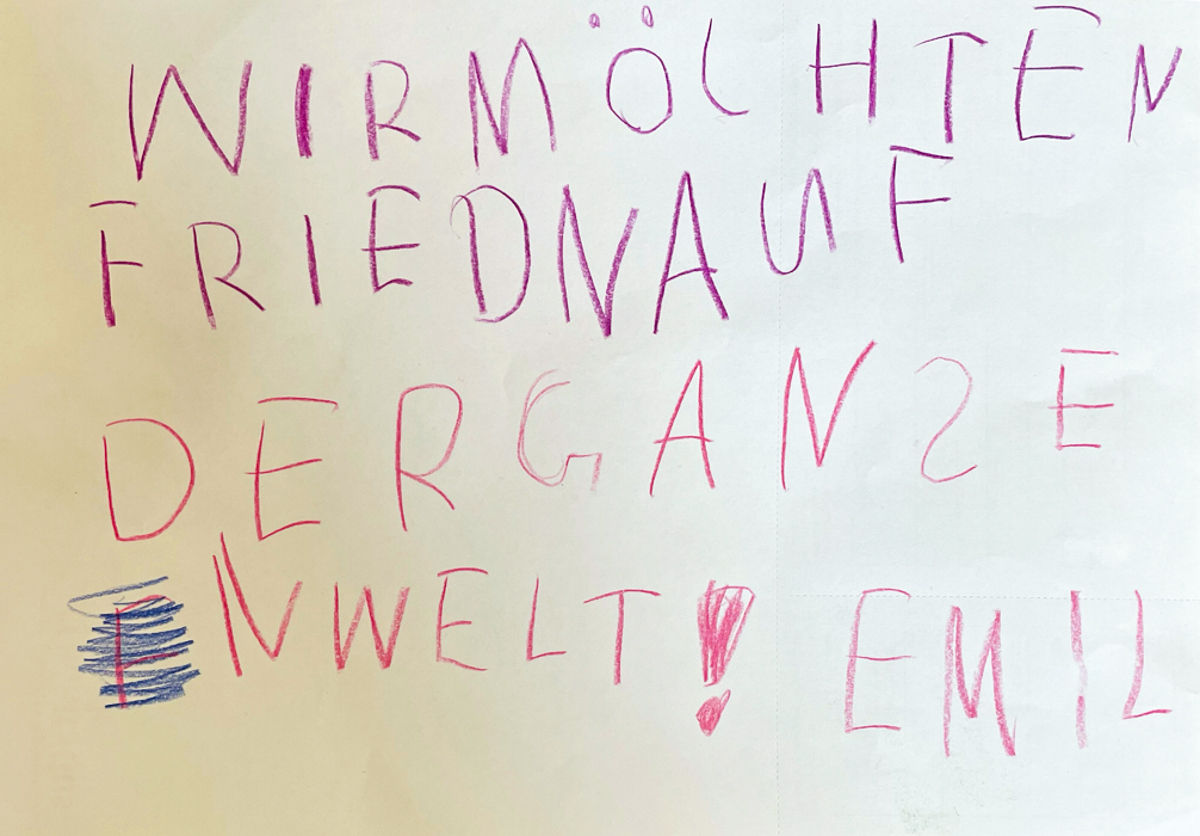 WIR MÖCHTEN
FRIEDN AUF
DER GANSE
N WELT! EMIL